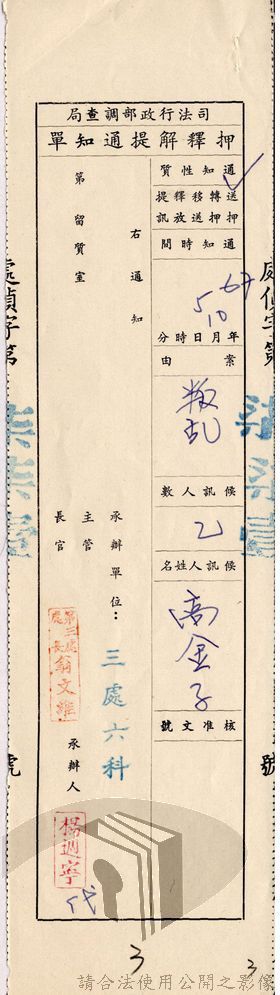 司法行政部調查局
押釋解提通知單
通知性質
送押
轉押
移送
釋放
提訊
通知時間
67
5
10
年月日時分
案由
叛乱
候訊人數
乙
候訊人姓名
高金子
核准文號
右通知
第留質室
承辦單位：
三處六科
主管
長官
第三處
處長
翁文維
承辦人
楊迺寧
代
處偵字第
柒柒壹
號
3
3
請合法使用公開之影像